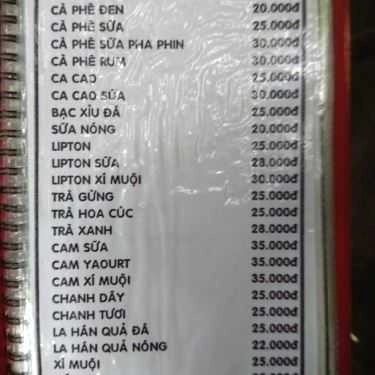 CÀ PHÊ ĐEN 20.000đ
CÀ PHÊ SỮA 25.000đ
CÀ PHÊ SỮA PHA PHIN 30.000đ
CÀ PHÊ RUM 30.000đ
CA CAO 25.000đ
CA CAO SỮA 30.000đ
BẠC XỈU ĐÁ 25.000đ
SỮA NÓNG 20.000đ
LIPTON 25.000đ
LIPTON SỮA 28.000đ
LIPTON XÍ MUỘI 30.000đ
TRÀ GỪNG 25.000đ
TRÀ HOA CÚC 25.000đ
TRÀ XANH 28.000đ
CAM SỮA 35.000đ
CAM YAOURT 35.000đ
CAM XÍ MUỘI 35.000đ
CHANH DÂY 25.000đ
CHANH TƯƠI 25.000đ
LA HÁN QUẢ ĐÁ 25.000đ
LA HÁN QUẢ NÓNG 22.000đ
XÍ MUỘI 25.000đ